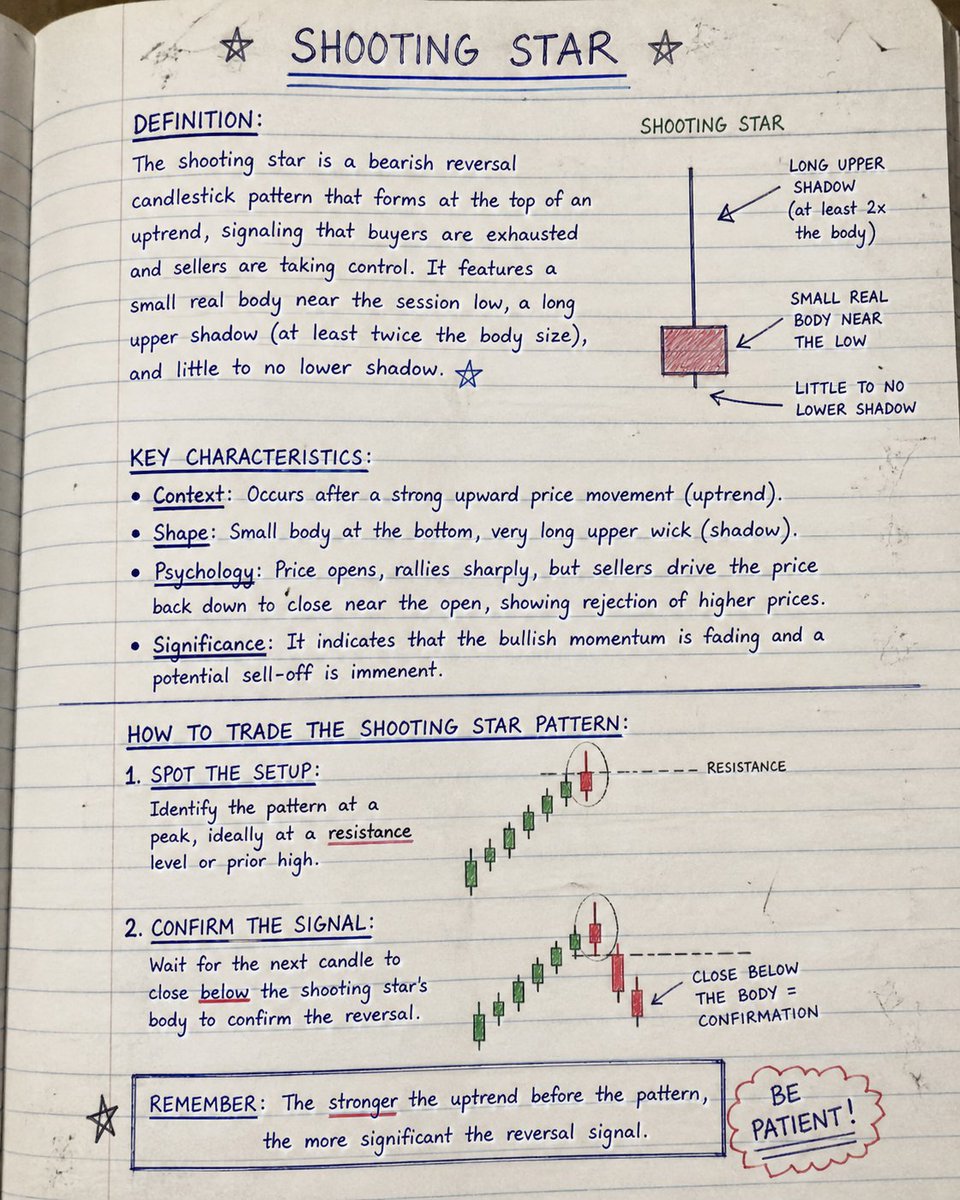 ☆ SHOOTING STAR ☆
DEFINITION:
The shooting star is a bearish reversal
candlestick pattern that forms at the top of an
uptrend, signaling that buyers are exhausted
and sellers are taking control. It features a
small real body near the session low, a long
upper shadow (at least twice the body size),
and little to no lower shadow. ☆
SHOOTING STAR
LONG UPPER
SHADOW
(at least 2x
the body)
SMALL REAL
BODY NEAR
THE LOW
LITTLE TO NO
LOWER SHADOW
KEY CHARACTERISTICS:
• Context: Occurs after a strong upward price movement (uptrend).
• Shape: Small body at the bottom, very long upper wick (shadow).
• Psychology: Price opens, rallies sharply, but sellers drive the price
back down to close near the open, showing rejection of higher prices.
• Significance: It indicates that the bullish momentum is fading and a
potential sell-off is immenent.
HOW TO TRADE THE SHOOTING STAR PATTERN:
1. SPOT THE SETUP:
Identify the pattern at a
peak, ideally at a resistance
level or prior high.
RESISTANCE
2. CONFIRM THE SIGNAL:
Wait for the next candle to
close below the shooting star's
body to confirm the reversal.
CLOSE BELOW
THE BODY =
CONFIRMATION
REMEMBER: The stronger the uptrend before the pattern,
the more significant the reversal signal.
BE
PATIENT!